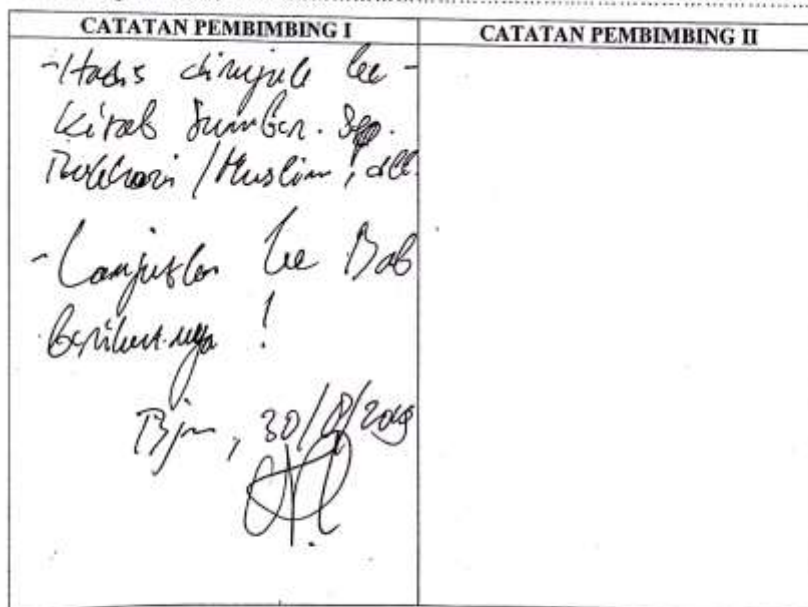 CATATAN PEMBIMBING I
CATATAN PEMBIMBING II
- Hadis dirujuk ke
Kitab Sumber. Sep.
Bukhari / Muslim, dll.
- Lanjutkan ke Bab
berikutnya !
Bjm, 30/8/2019